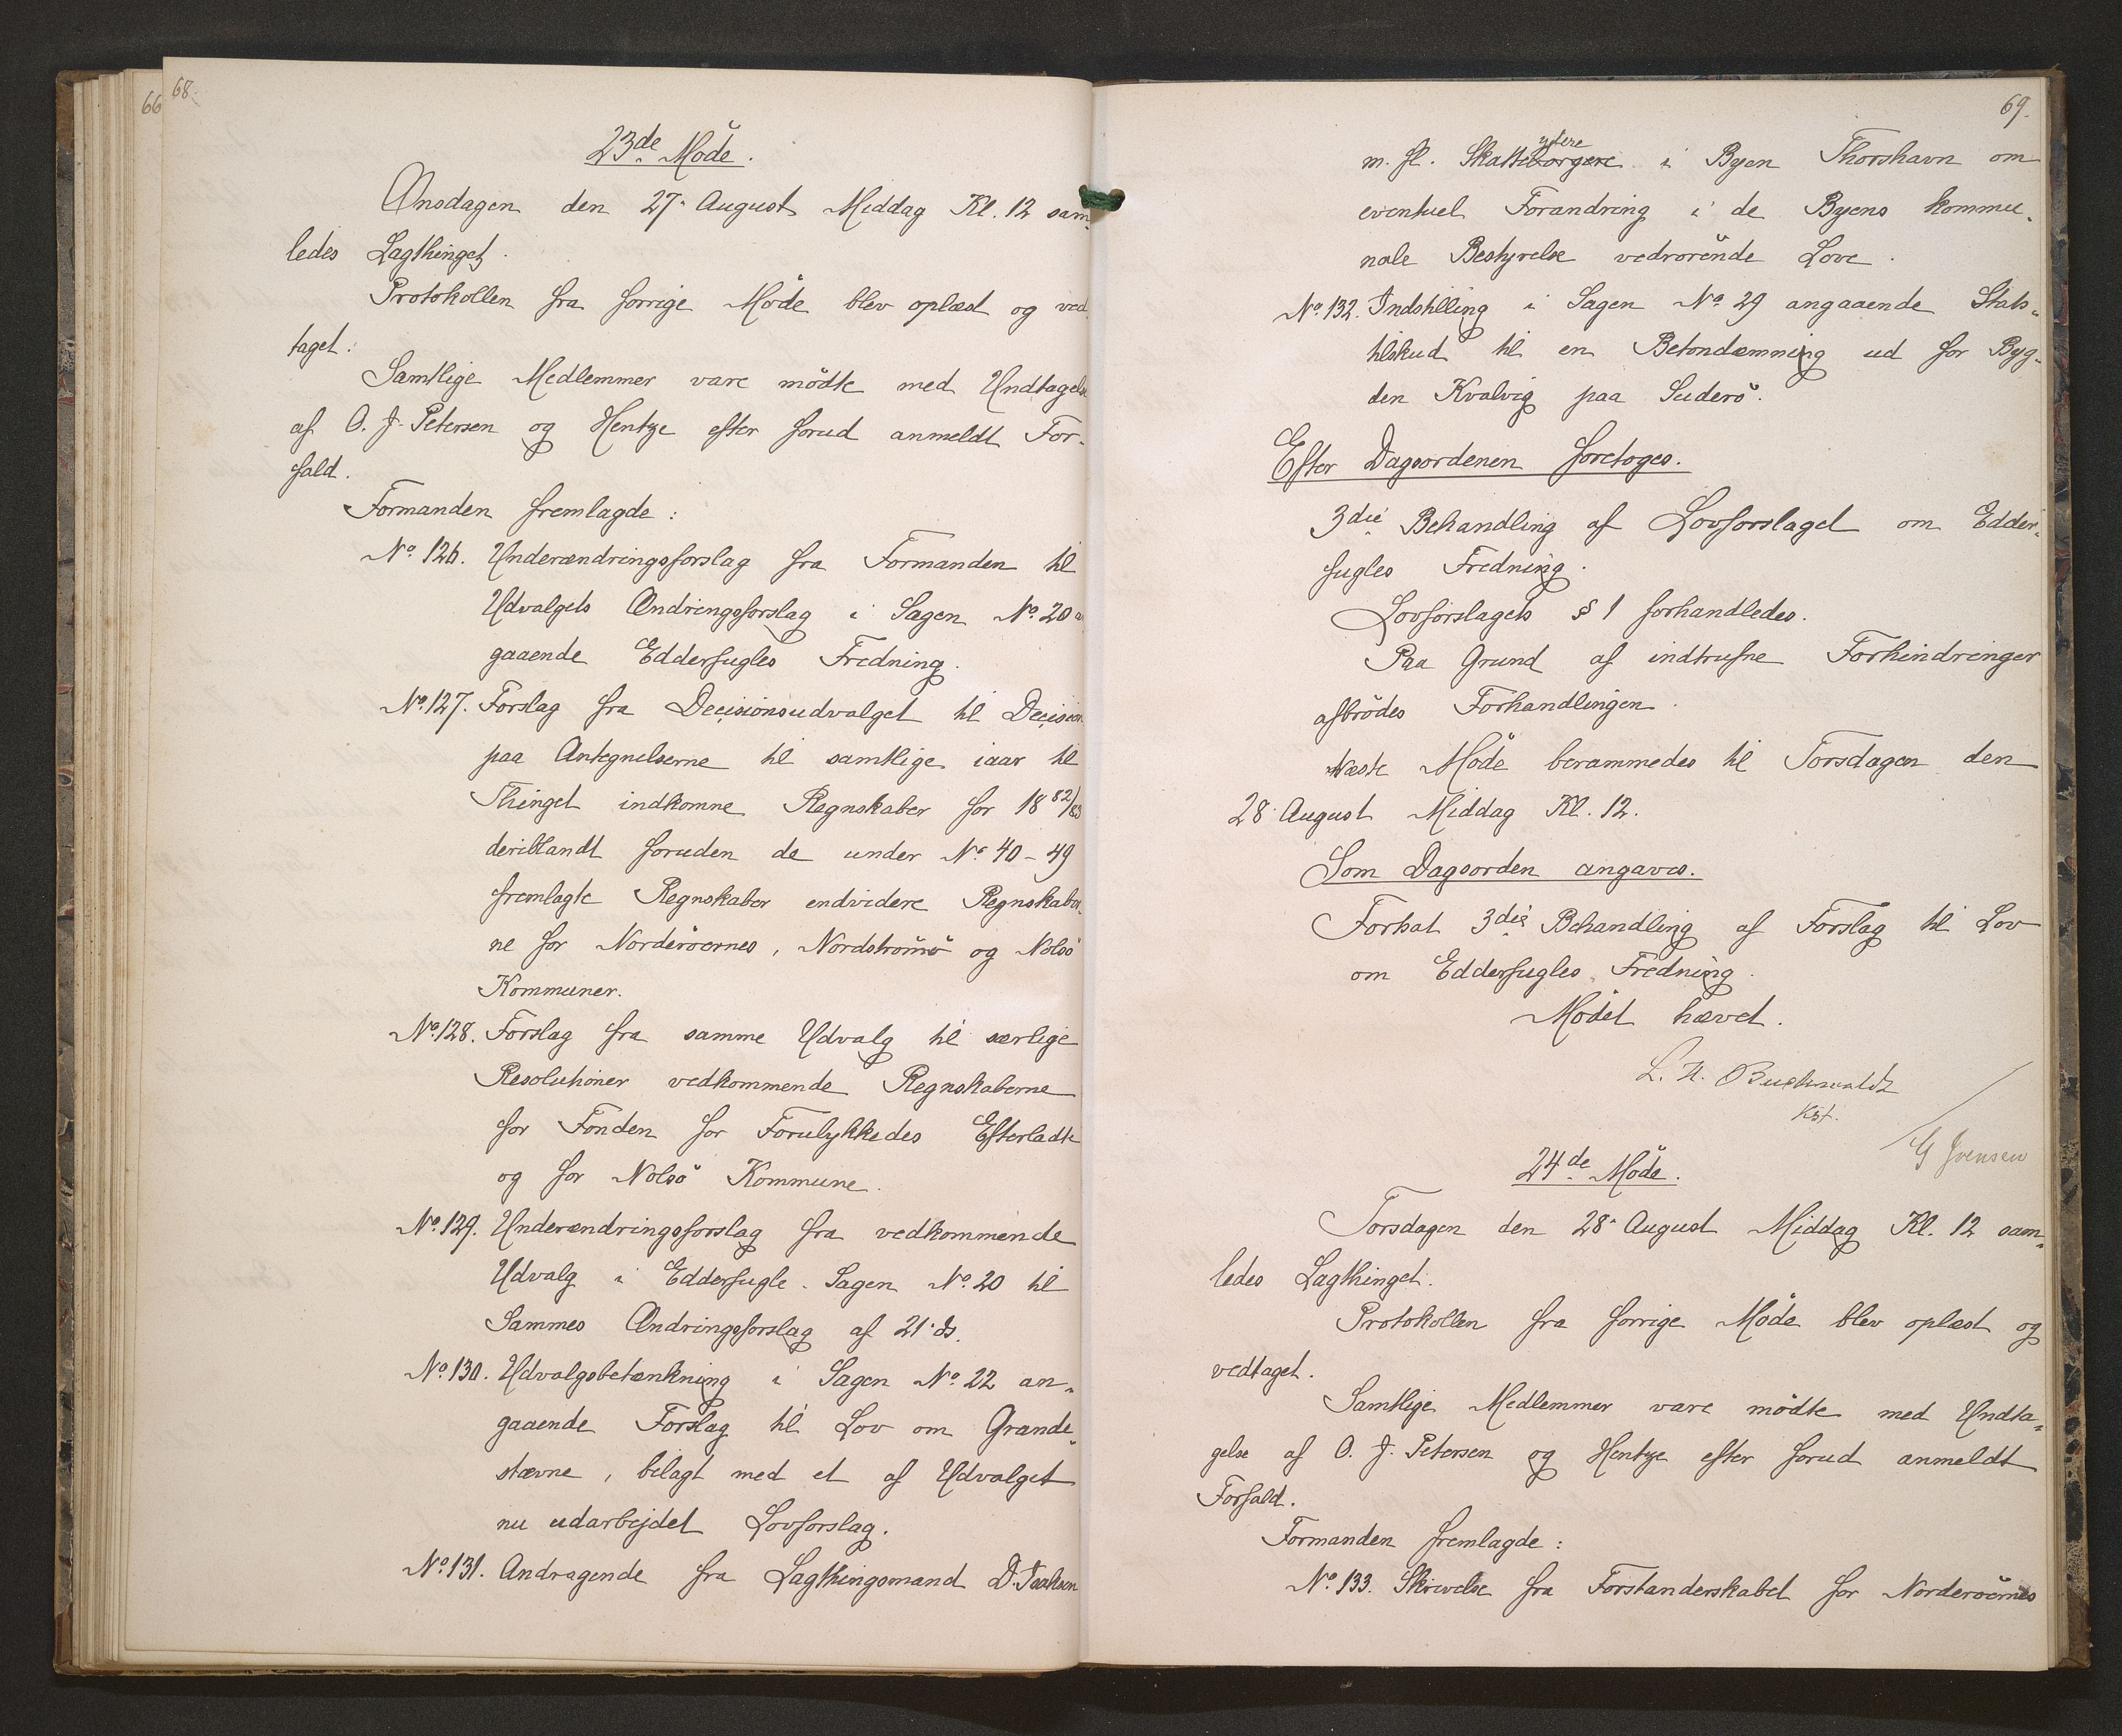 66
68.
23de Møde.
Onsdagen den 27. August Middag Kl. 12 sam-
ledes Lagthinget.
Protokollen fra forrige Møde blev oplæst og ved-
taget.
Samtlige Medlemmer vare mødte med Undtagelse
af O. J. Petersen og Hentze efter forud anmeldt For-
fald.
Formanden fremlagde:
No. 126. Underændringsforslag fra Formanden til
Udvalgets Ændringsforslag i Sagen No. 20 a
gaaende Edderfugles Fredning.
No. 127. Forslag fra Decisionsudvalget til Decision
paa Antegnelserne til samtlige iaar til
Thinget indkomne Regnskaber for 1882/83
deriblandt foruden de under No. 40-49
fremlagte Regnskaber endvidere Regnskaber-
ne for Norderøernes, Nordstrømø og Nolsø
Kommuner.
No. 128. Forslag fra samme Udvalg til særlige
Resolutioner vedkommende Regnskaberne
for Fonden for Forulykkedes Efterladte
og for Nolsø Kommune.
No. 129. Underændringsforslag fra vedkommende
Udvalg i Edderfugle-Sagen No. 20 til
Sammes Ændringsforslag af 21. ds.
No. 130. Udvalgsbetænkning i Sagen No. 22 an-
gaaende Forslag til Lov om Grande-
stævne, bilagt med et af Udvalget
nu udarbejdet Lovforslag.
No. 131. Andragende fra Lagthingsmand D. Isaksen
69.
ydere
m. fl. Skatteborgere i Byen Thorshavn om
eventuel Forandring i de Byens kommu-
nale Bestyrelse vedrørende Love.
No. 132. Indstilling i Sagen No. 29 angaaende Stats-
tilskud til en Betondæmning ud for Byg-
den Kvalvig paa Suderø.
Efter Dagsordenen foretoges.
3die Behandling af Lovforslaget om Edder-
fugles Fredning.
Lovforslagets § 1 forhandledes.
Paa Grund af indtrufne Forhindringer
afbrødes Forhandlingen.
Næste Møde berammedes til Torsdagen den
28. August Middag Kl. 12.
Som Dagsorden angaves.
Fortsat 3die Behandling af Forslag til Lov
om Edderfugles Fredning.
Mødet hævet.
L. H. Buchwaldt
Kst.
24de Møde.
Torsdagen den 28. August Middag Kl. 12 sam-
ledes Lagthinget.
Protokollen fra forrige Møde blev oplæst og
vedtaget.
Samtlige Medlemmer vare mødte med Undta-
gelse af O. J. Petersen og Hentze efter forud anmeldt
Forfald.
Formanden fremlagde:
No. 133. Skrivelse fra Forstanderskabet for Norderøernes